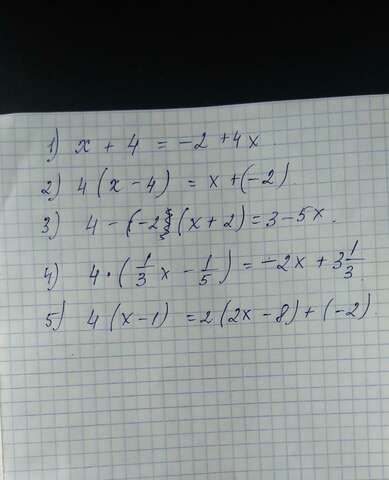 1) x + 4 = -2 + 4x
2) 4(x - 4) = x + (-2)
3) 4 - (-2)(x + 2) = 3 - 5x.
4) 4 · (1/3 x - 1/5) = -2x + 3 1/3
5) 4(x - 1) = 2(2x - 8) + (-2)